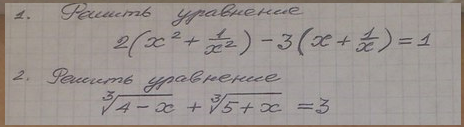 1. Решить уравнение
2(x² + 1/x²) - 3(x + 1/x) = 1
2. Решить уравнение
∛(4-x) + ∛(5+x) = 3